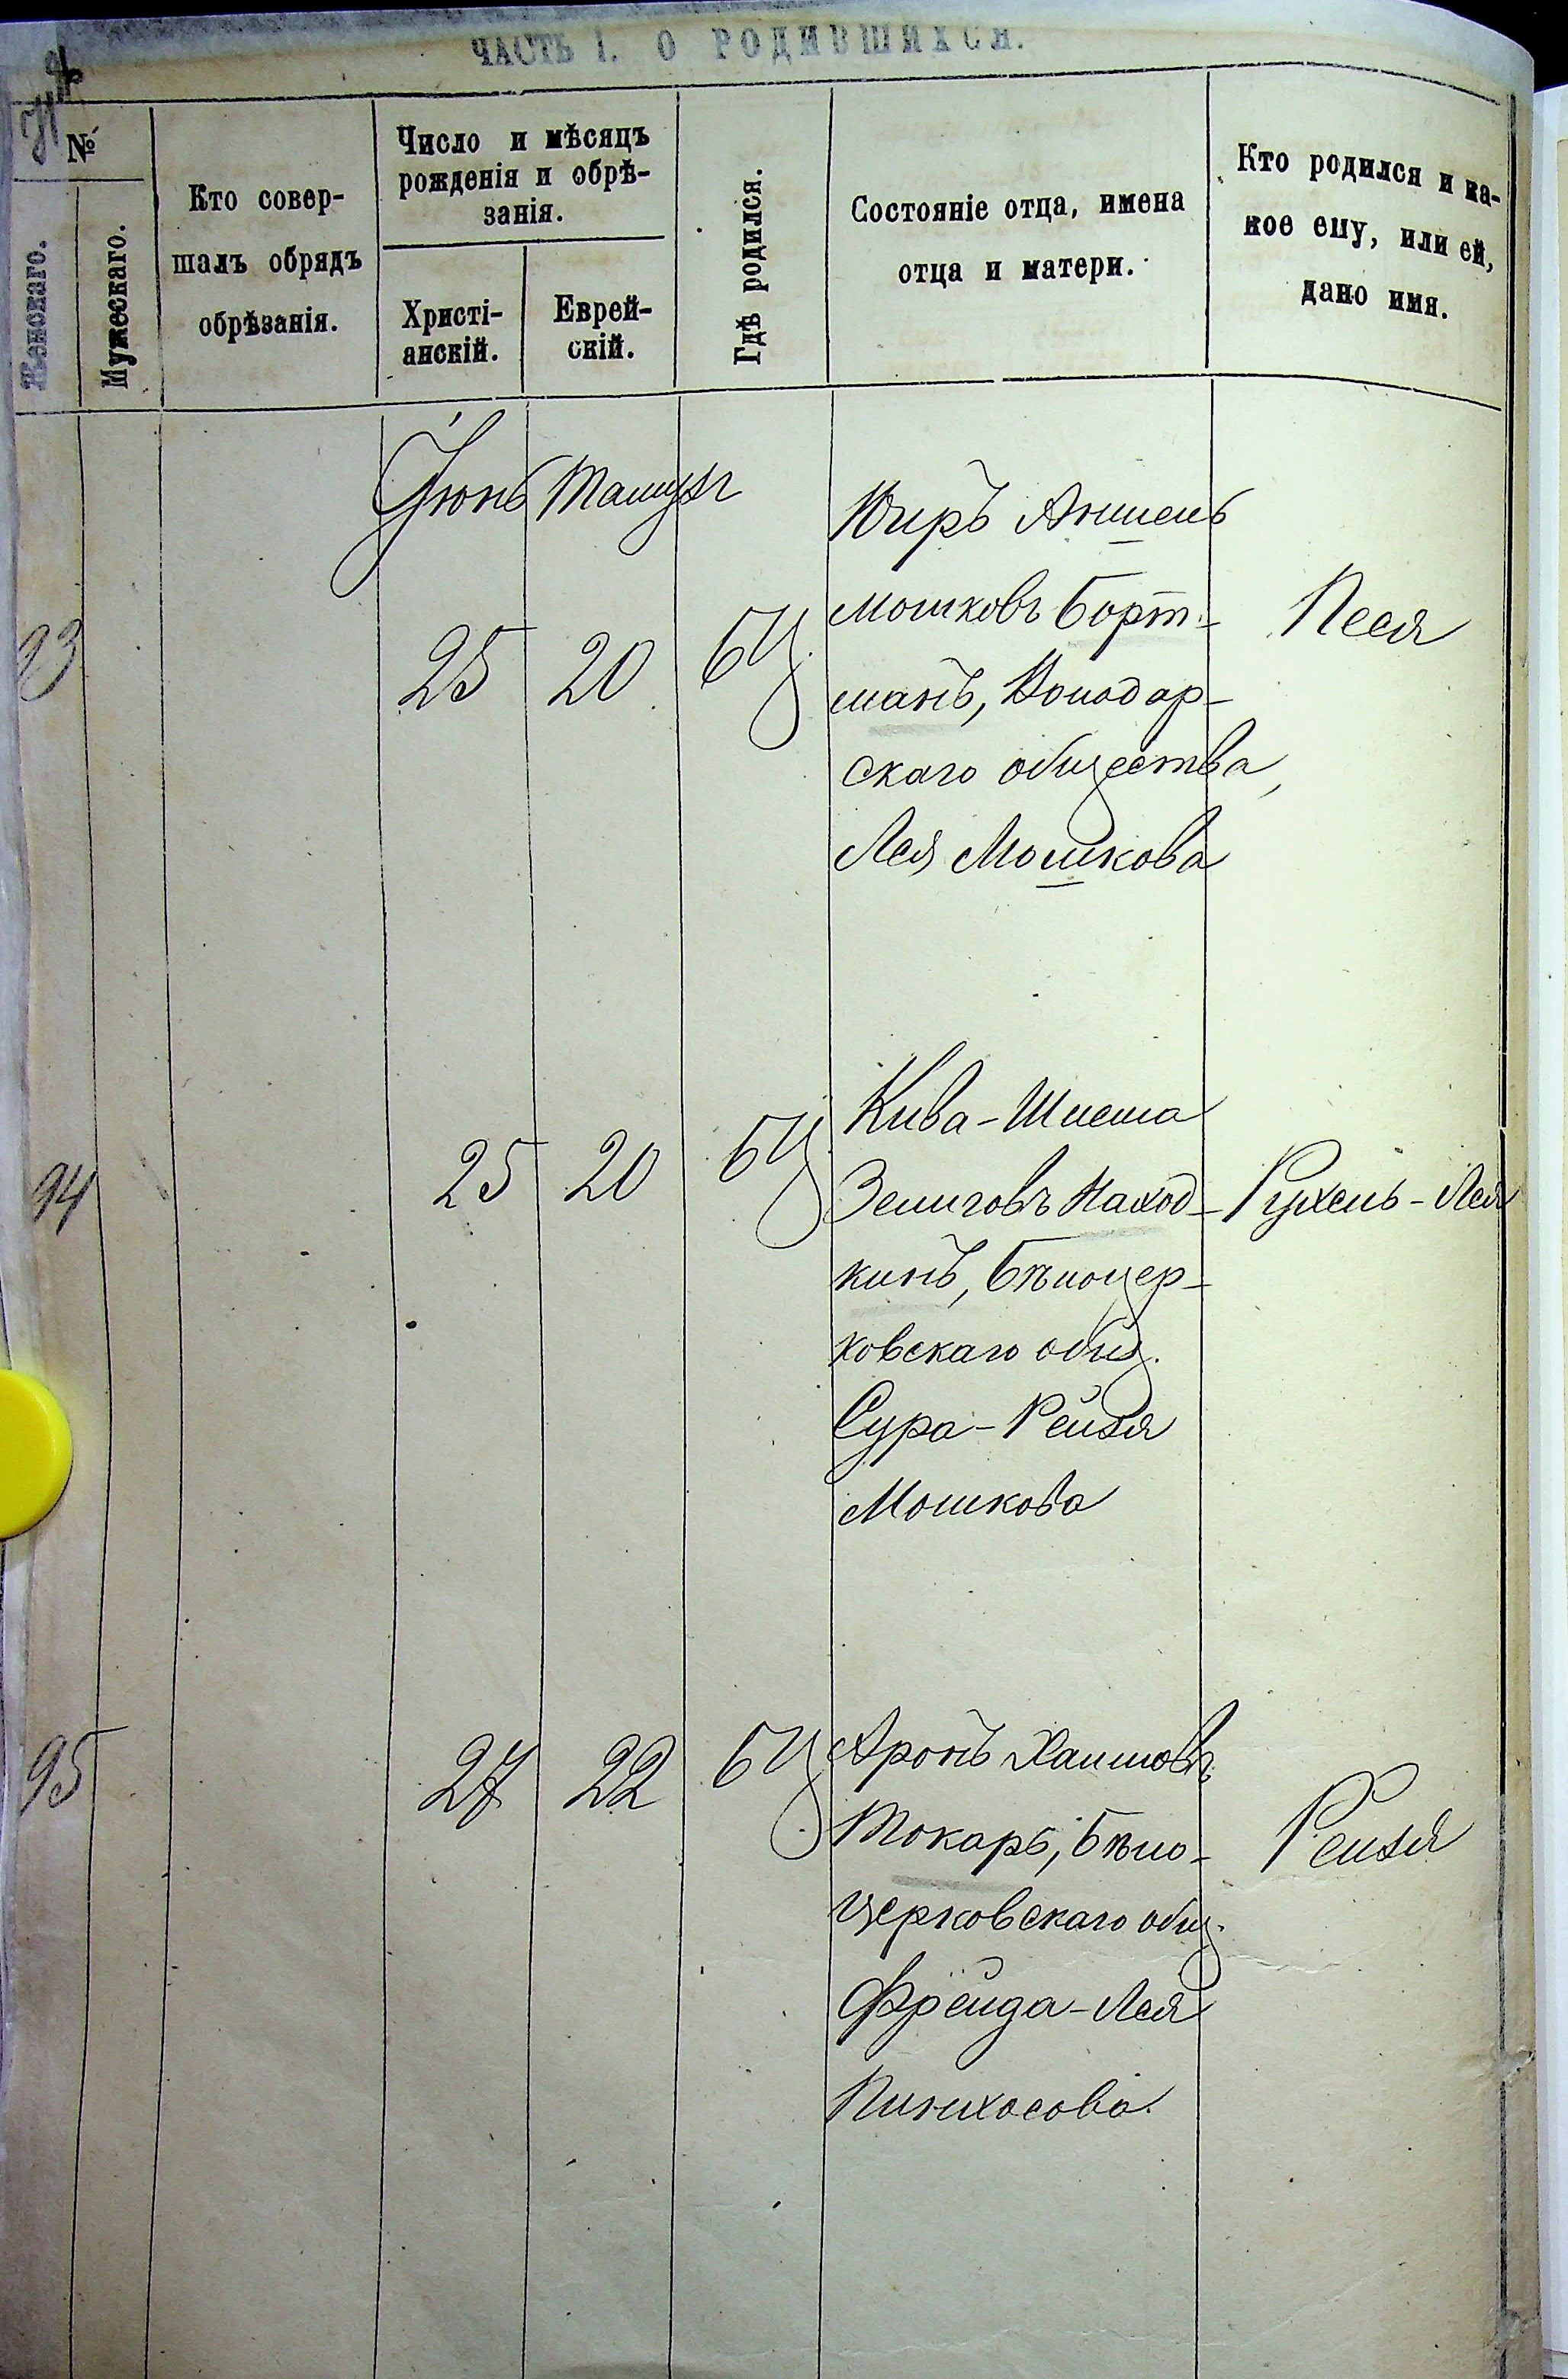 ЧАСТЬ I. О РОДИВШИХСЯ.
№
Женскаго.
Мужескаго.
Кто совер-
шалъ обрядъ
обрѣзанія.
Число и мѣсяцъ
рожденія и обрѣ-
занія.
Христі-
анскій.
Еврей-
скій.
Гдѣ родился.
Состояніе отца, имена
отца и матери.
Кто родился и ка-
кое ему, или ей,
дано имя.
Іюнь Тамузъ
93
25 20 БЦ
Юиръ Аншель
Мошковъ Борт-
манъ, Володар-
скаго общества,
Лея Мошкова
Песя
94
25 20 БЦ
Кива-Шлема
Зелиговъ Наход-
кинъ, Бѣлоцер-
ковскаго общ.
Сура-Рейзя
Мошкова
Рухель-Лея
95
27 22 БЦ
Аронъ Хаимовъ
Токарь, Бѣло-
церковскаго общ.
Фрейда-Лея
Пинхосова.
Рейзя